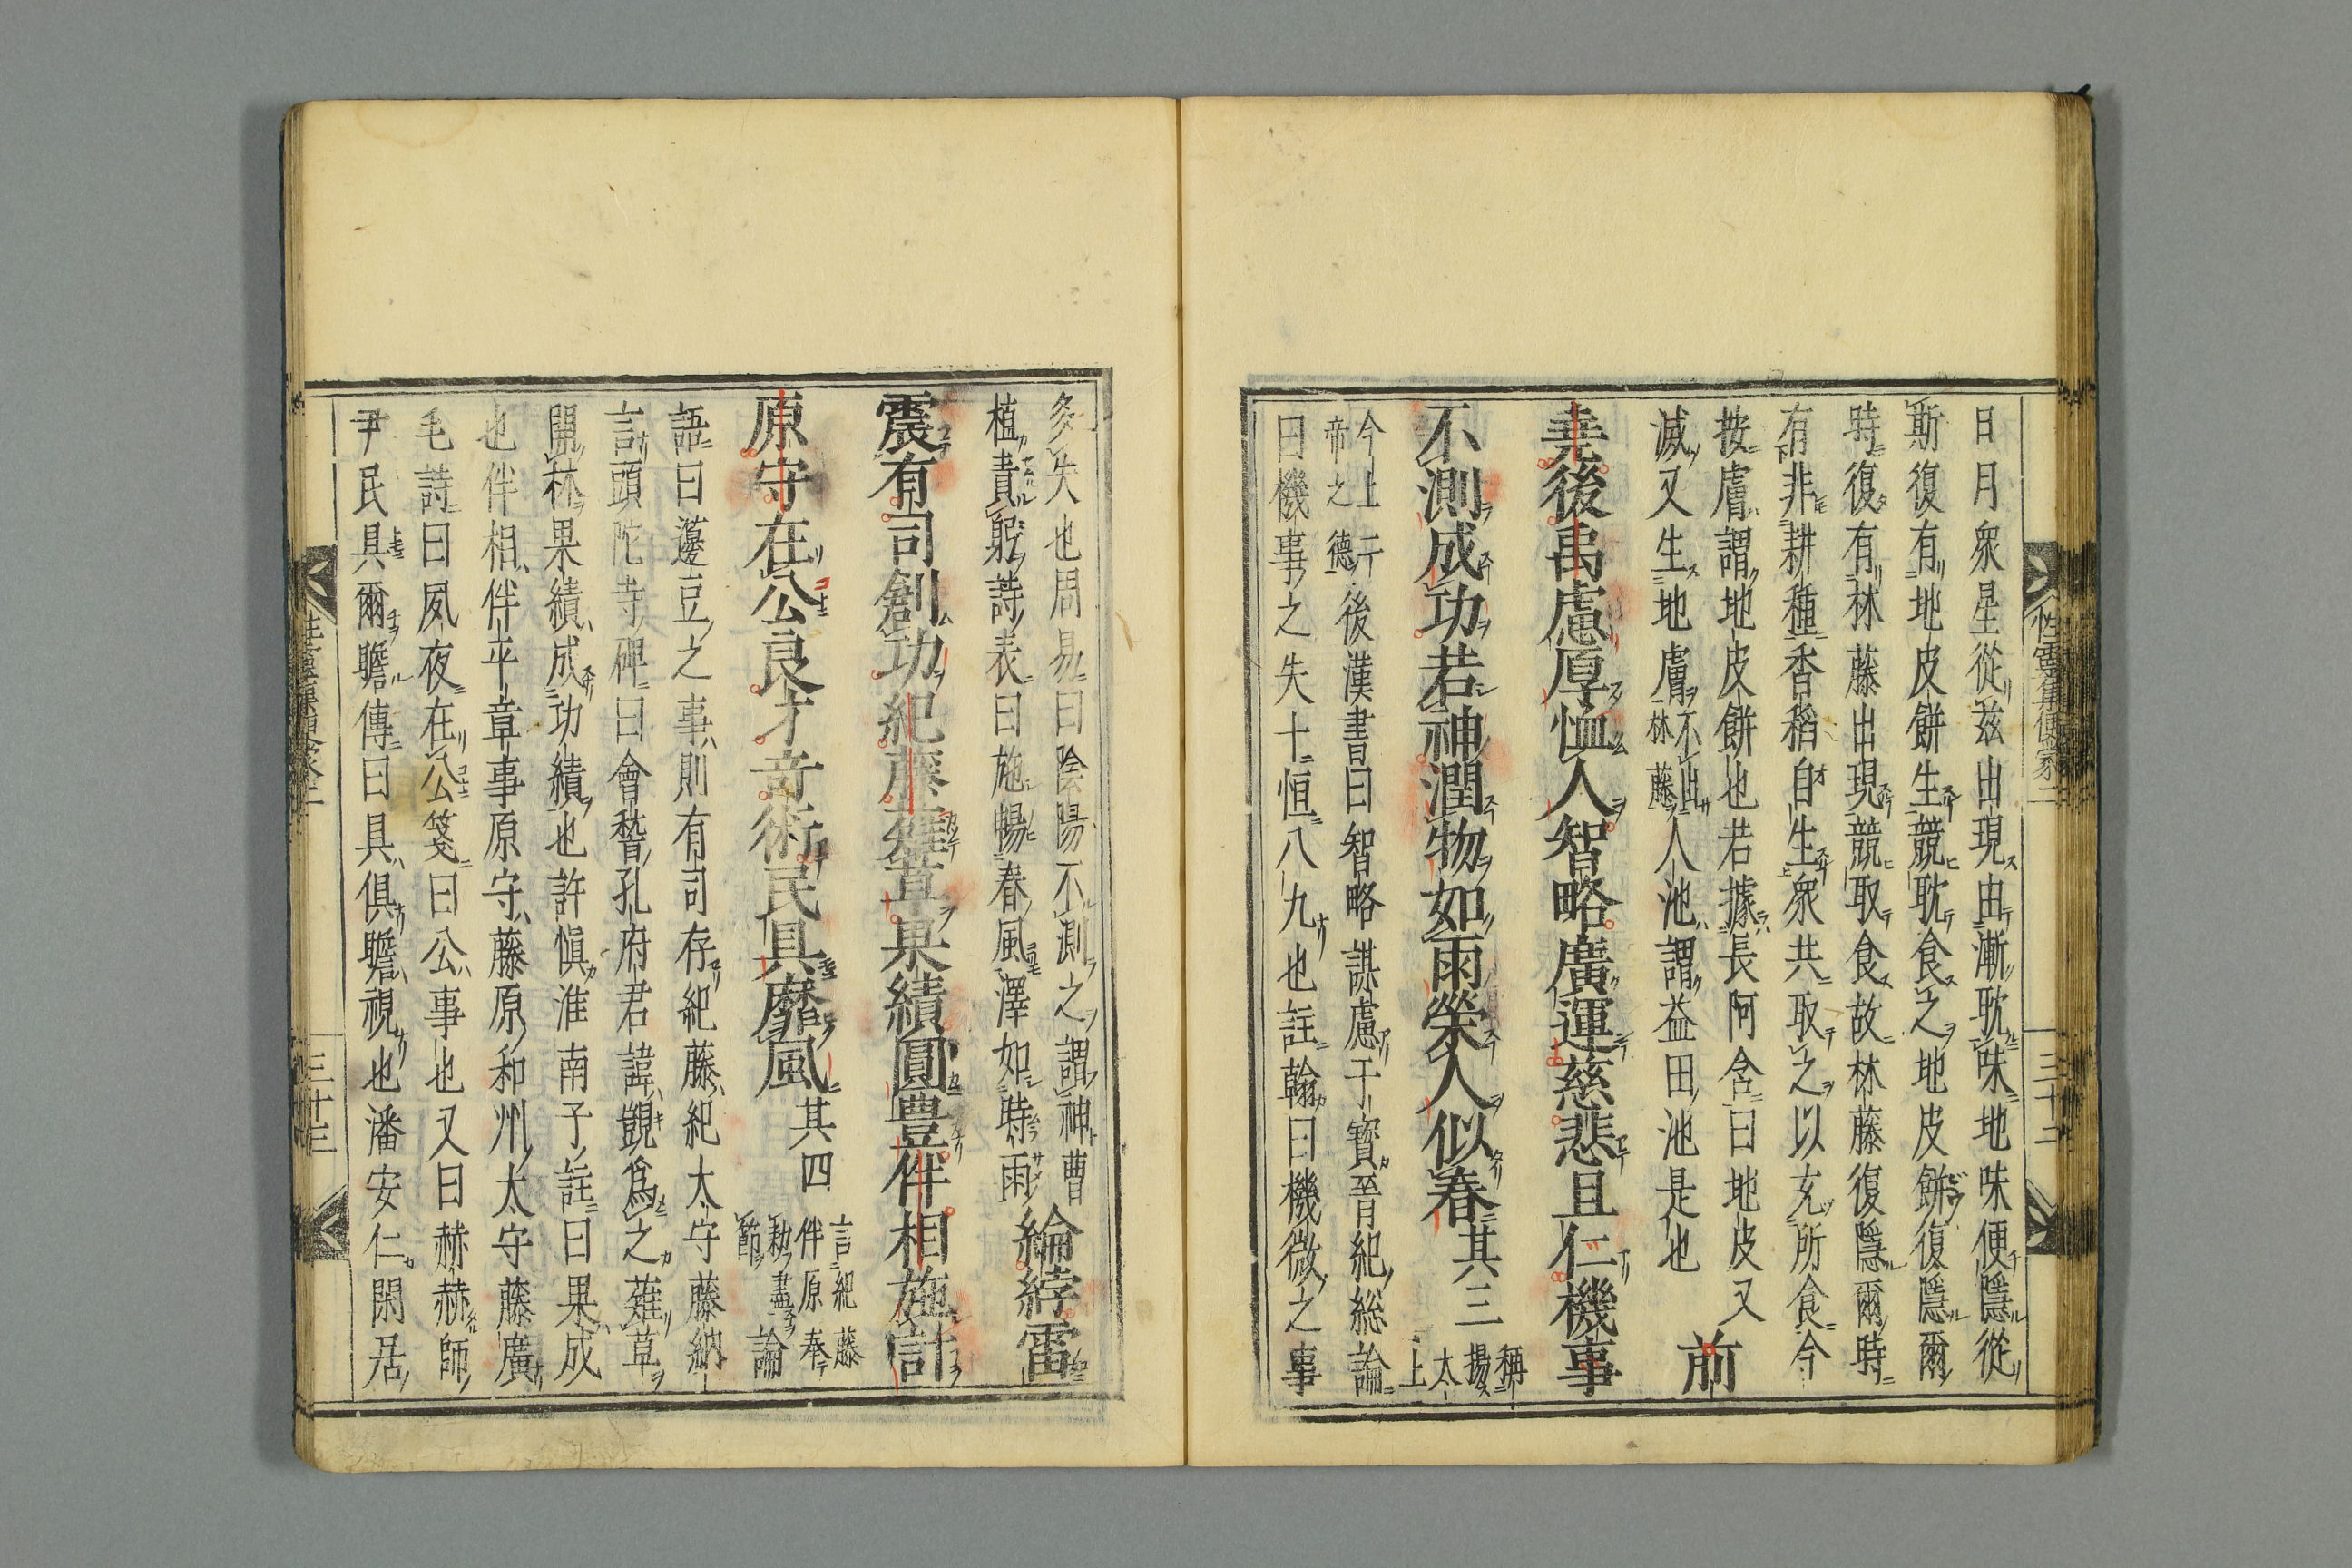 性靈集便蒙二
三十二
日月衆星從茲出現由漸耽味地味便隱從
斯復有地皮餅生競耽食之地皮餅復隱爾
時復有林藤出現競取食故林藤復隱爾時
有非耕種香稻自生衆共取之以充所食今
按膚謂地皮餅也若據長阿含曰地皮又
滅又生地膚不出林藤人池謂益田池是也 前
堯後禹慮厚恤人智略廣運慈悲且仁機事
不測成功若神潤物如雨榮人似春其三 稱揚太上
今上二帝之德 後漢書曰智略謀慮干寶晉紀總論
曰機事之失十恒八九也註翰曰機微之事
多失也周易曰陰陽不測之謂神曹
植責躬詩表曰施暢春風澤如時雨 綸綍雷
震有司創功紀藤薙草果績圓豊伴相施計
原守在公良才奇術民具靡風其四 言紀藤伴原奉勅盡節 論
語曰籩豆之事則有司存紀藤紀太守藤納
言頭陀寺碑曰會稽孔府君諱覬爲之薙草
開林果績成功績也許愼淮南子註曰果成
也伴相伴平章事原守藤原和州太守藤廣
毛詩曰夙夜在公箋曰公事也又曰赫赫師
尹民具爾瞻傳曰具俱瞻視也潘安仁閑居
三十三